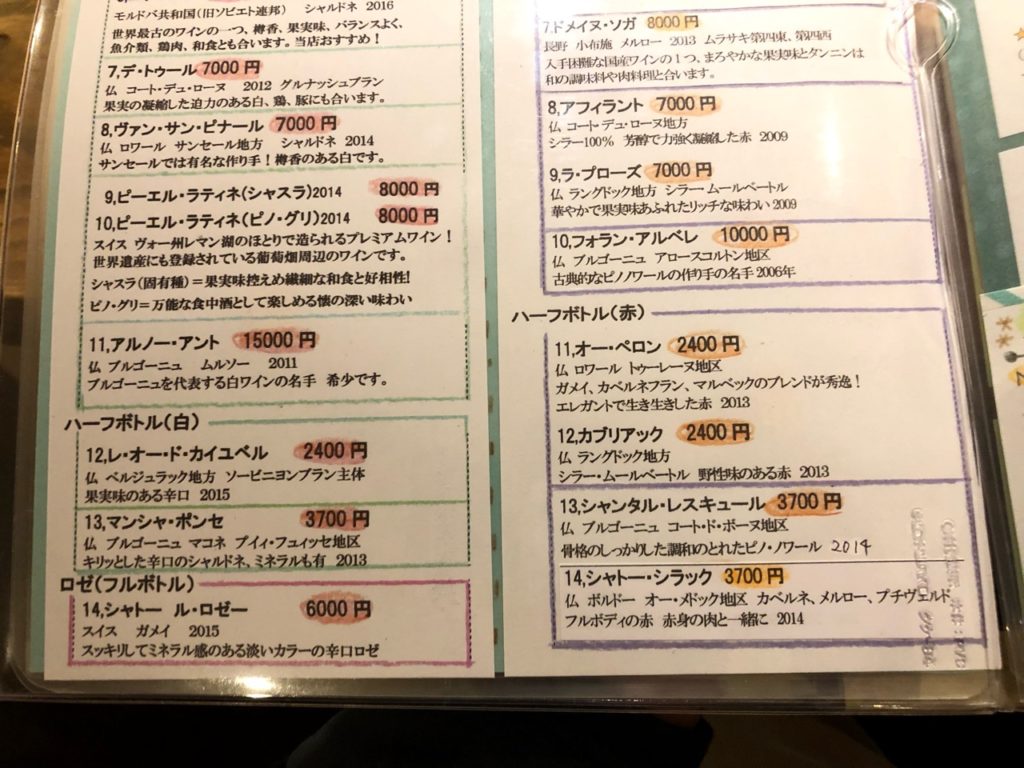 モルドバ共和国(旧ソビエト連邦) シャルドネ 2016
世界最古のワインの一つ、樽香、果実味、バランスよく、
魚介類、鶏肉、和食とも合います。当店おすすめ!
7,デ・トゥール 7000 円
仏 コート・デュ・ローヌ 2012 グルナッシュブラン
果実の凝縮した迫力のある白、鶏、豚にも合います。
8,ヴァン・サン・ピナール 7000 円
仏 ロワール サンセール地方 シャルドネ 2014
サンセールでは有名な作り手!樽香のある白です。
9,ピーエル・ラティネ(シャスラ)2014 8000 円
10,ピーエル・ラティネ(ピノ・グリ)2014 8000 円
スイス ヴォー州レマン湖のほとりで造られるプレミアムワイン!
世界遺産にも登録されている葡萄畑周辺のワインです。
シャスラ(固有種)=果実味控えめ繊細な和食と好相性!
ピノ・グリ=万能な食中酒として楽しめる懐の深い味わい
11,アルノー・アント 15000 円
仏 ブルゴーニュ ムルソー 2011
ブルゴーニュを代表する白ワインの名手 希少です。
ハーフボトル(白)
12,レ・オー・ド・カイユベル 2400 円
仏 ベルジュラック地方 ソービニヨンブラン主体
果実味のある辛口 2015
13,マンシャ・ポンセ 3700 円
仏 ブルゴーニュ マコネ プイィ・フュィッセ地区
キリッとした辛口のシャルドネ、ミネラルも有 2013
ロゼ(フルボトル)
14,シャトー ル・ロゼー 6000 円
スイス ガメイ 2015
スッキリしてミネラル感のある淡いカラーの辛口ロゼ
7.ドメイヌ・ソガ 8000 円
長野 小布施 メルロー 2013 ムラサキ第四東、第四西
入手困難な国産ワインの1つ、まろやかな果実味とタンニンは
和の調味料や肉料理と合います。
8,アフィラント 7000 円
仏 コート・デュ・ローヌ地方
シラー100% 芳醇で力強く凝縮した赤 2009
9,ラ・プローズ 7000 円
仏 ラングドック地方 シラー・ムールベートル
華やかで果実味あふれたリッチな味わい 2009
10,フォラン・アルベレ 10000 円
仏 ブルゴーニュ アロースコルトン地区
古典的なピノノワールの作り手の名手 2006年
ハーフボトル(赤)
11,オー・ペロン 2400 円
仏 ロワール トゥーレーヌ地区
ガメイ、カベルネフラン、マルベックのブレンドが秀逸!
エレガントで生き生きした赤 2013
12,カブリアック 2400 円
仏 ラングドック地方
シラー・ムールベートル 野性味のある赤 2013
13,シャンタル・レスキュール 3700 円
仏 ブルゴーニュ コート・ド・ボーヌ地区
骨格のしっかりした調和のとれたピノ・ノワール 2014
14,シャトー・シラック 3700 円
仏 ボルドー オー・メドック地区 カベルネ、メルロー、プチヴェルド
フルボディの赤 赤身の肉と一緒に 2014